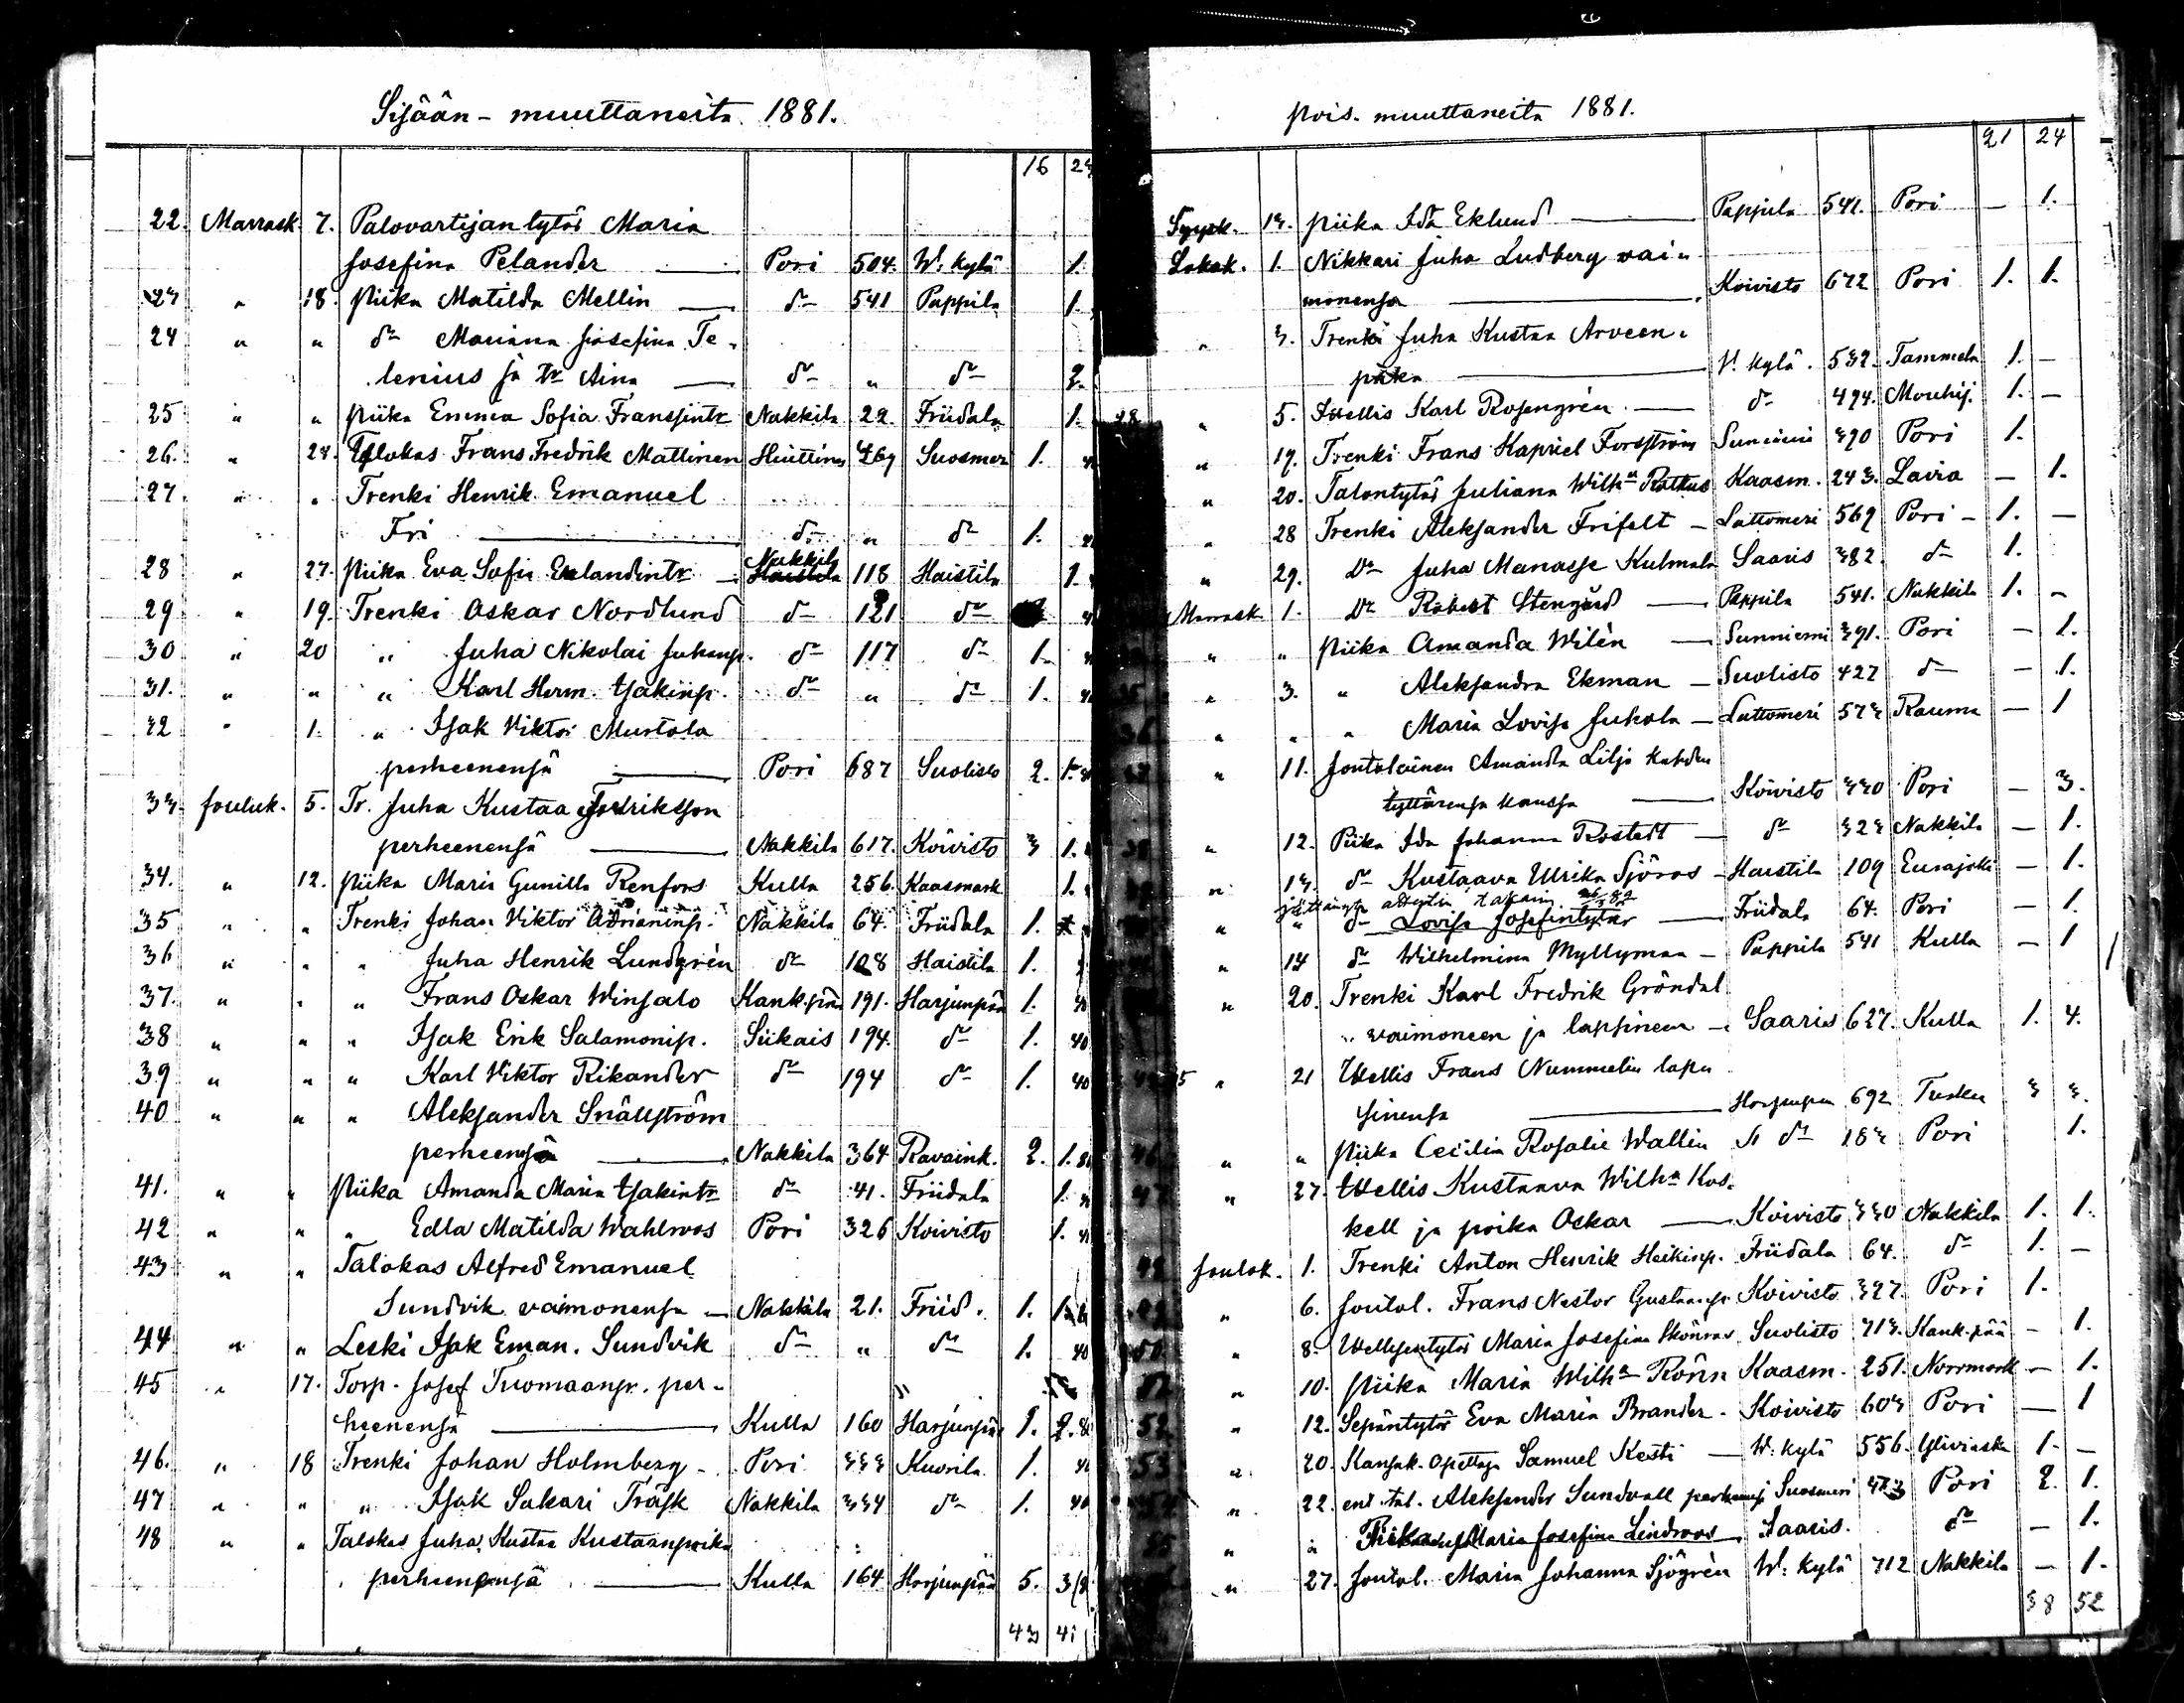 Sisään-muuttaneita 1881.
16 24
22. Marrask. 7. Palovartijantytär Maria
Josefina Pelander — Pori 504. W. kylä 1.
23 " 18. piika Matilda Mellin — do 541 Pappila 1.
24 " " do Mariana Josefina Te-
lenius ja Tr Aina — do " do 2.
25 " " piika Emma Sofia Fransintr Nakkila 22. Friidala 1.
26. " 24. Frans Fredrik Mattinen Huittinen 469 Suosmer 1.
27. " " Trenki Henrik Emanuel
Fri — do " do 1.
28 " 27. piika Eva Sofia Erlandintr — Nakkila 118 Haistila 1
29 " 19. Trenki Oskar Nordlund do 121 do
30 " 20 " Juha Nikolai Juhanp. do 117 do 1.
31. " " " Karl Herm. Isakinp. do " do 1.
32 " 1. " Isak Viktor Mustola
perheenensä — Pori 687 Suolisto 2. 1.
33. Jouluk. 5. Tr. Juha Kustaa Fredriksson
perheenensä — Nakkila 617. Koivisto 3 1.
34. " 12. piika Maria Gunilla Renfors Kulla 256. Kaasmark 1.
35 " " Trenki Johan Viktor Adrianinp. Nakkila 64. Friidala 1.
36 " " " Juha Henrik Lundgrén do 108 Haistila 1.
37. " " " Frans Oskar Winsalo Kank.pää 191. Harjunpää 1.
38 " " " Isak Erik Salamonip. Siikais 194. do 1. 40
39 " " " Karl Viktor Rikander do 194 do 1. 40
40 " " " Aleksander Snällström
perheensä — Nakkila 364 Ravaink. 2. 1.
41. " " piika Amanda Maria Isakintr do 41. Friidala 1.
42 " " " Edla Matilda Wahlroos Pori 326 Koivisto 1.
43 " " Talokas Alfred Emanuel
Sundvik vaimonensa — Nakkila 21. Friid. 1. 1.
44 " " Leski Isak Eman. Sundvik do " do 1. 40
45 " 17. Torp. Josef Tuomaanp. per-
heenensä — Kulla 160 Harjunpää 1. 2.
46. " 18 Trenki Johan Holmberg - Pori 333 Kuorila 1.
47 " " " Isak Sakari Träsk Nakkila 334 do 1. 40
48 " " Talokas Juha Kustaa Kustaanpoika
perheenensä — Kulla 164 Harjunpää 5. 3
43 41
pois-muuttaneita 1881.
21 24
Syysk. 13. piika Ida Eklund — Pappila 541. Pori — 1.
Lokak. 1. Nikkari Juha Ludberg vai-
monensa — Koivisto 672 Pori 1. 1.
" 3. Trenki Juha Kustaa Arveen-
poika — W. kylä. 532. Tammela 1. —
" 5. Itsellis Karl Rosengrén — do 494. Mouhij. 1. —
" 19. Trenki Frans Kapriel Forsström Suniemi 390 Pori 1.
" 20. Talontytär Juliana Wilhna Ratkus Kaasm. 243. Lavia — 1.
" 28 Trenki Aleksander Frifelt — Lattomeri 569 Pori — 1. —
" 29. Do Juha Manasse Kulmala Saaris 382. do 1.
Marrask. 1. Do Robert Stengård — Pappila 541. Nakkila 1. —
" " piika Amanda Wilén — Sunniemi 391. Pori — 1.
" 3. " Aleksandra Ekman — Suolisto 427 do — 1.
36 " " " Maria Lovisa Jukola — Lattomeri 573 Rauma — 1
" 11. Joutolainen Amanda Lilja kahden
tyttärensä kanssa — Koivisto 330 Pori — 3.
" 12. Piika Ida Johanna Rostedt — do 323 Nakkila — 1.
" 13. do Kustaava Ulrika Sjöros — Haistila 109 Eurajoki — 1.
" " do Lovisa Josefintytär — Friidala 64. Pori — 1.
" 14 do Wilhelmina Myllymaa — Pappila 541 Kulla — 1
" 20. Trenki Karl Fredrik Gröndal
vaimoneen ja lapsineen — Saaris 627. Kulla 1. 4.
" 21 Itsellis Frans Nummelin lap-
sinensa — Harjunpää 692 Turku 3 3.
46 " " piika Cecilia Rosalie Wallin do 183 Pori 1.
47 " 27. Itsellis Kustaava Wilhna Kos-
kell ja poika Oskar — Koivisto 330 Nakkila 1. 1.
Jouluk. 1. Trenki Anton Henrik Heikinp. Friidala 64. do 1. —
" 6. Joutol. Frans Nestor Gustaanp. Koivisto 327. Pori 1.
50. " 8. Itsellisentytär Maria Josefina Suolisto 713. Kank.pää — 1.
" 10. piika Maria Wilhna Rönn Kaasm. 251. Norrmark — 1.
52 " 12. Sepäntytär Eva Maria Brander. Koivisto 603 Pori — 1
53 " 20. Kansak. opettaja Samuel Kesti — W. kylä 556. Ylivieska 1. —
" 22. ent. tal. Aleksander Sundvall Suosmeri Pori 2. 1.
" " Piika Maria Josefina Lindroos Saaris. do — 1.
" 27. Joutol. Maria Johanna Sjögrén W. kylä 712 Nakkila — 1.
38 52